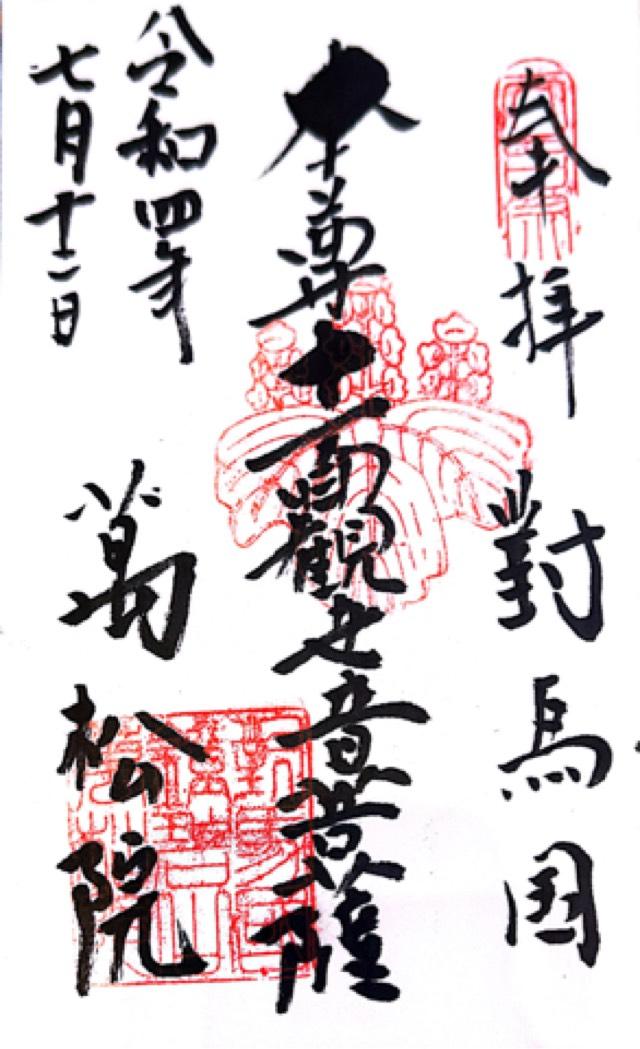 奉拝
對馬国
本尊十一面観世音菩薩
令和四年
七月十二日
萬松院